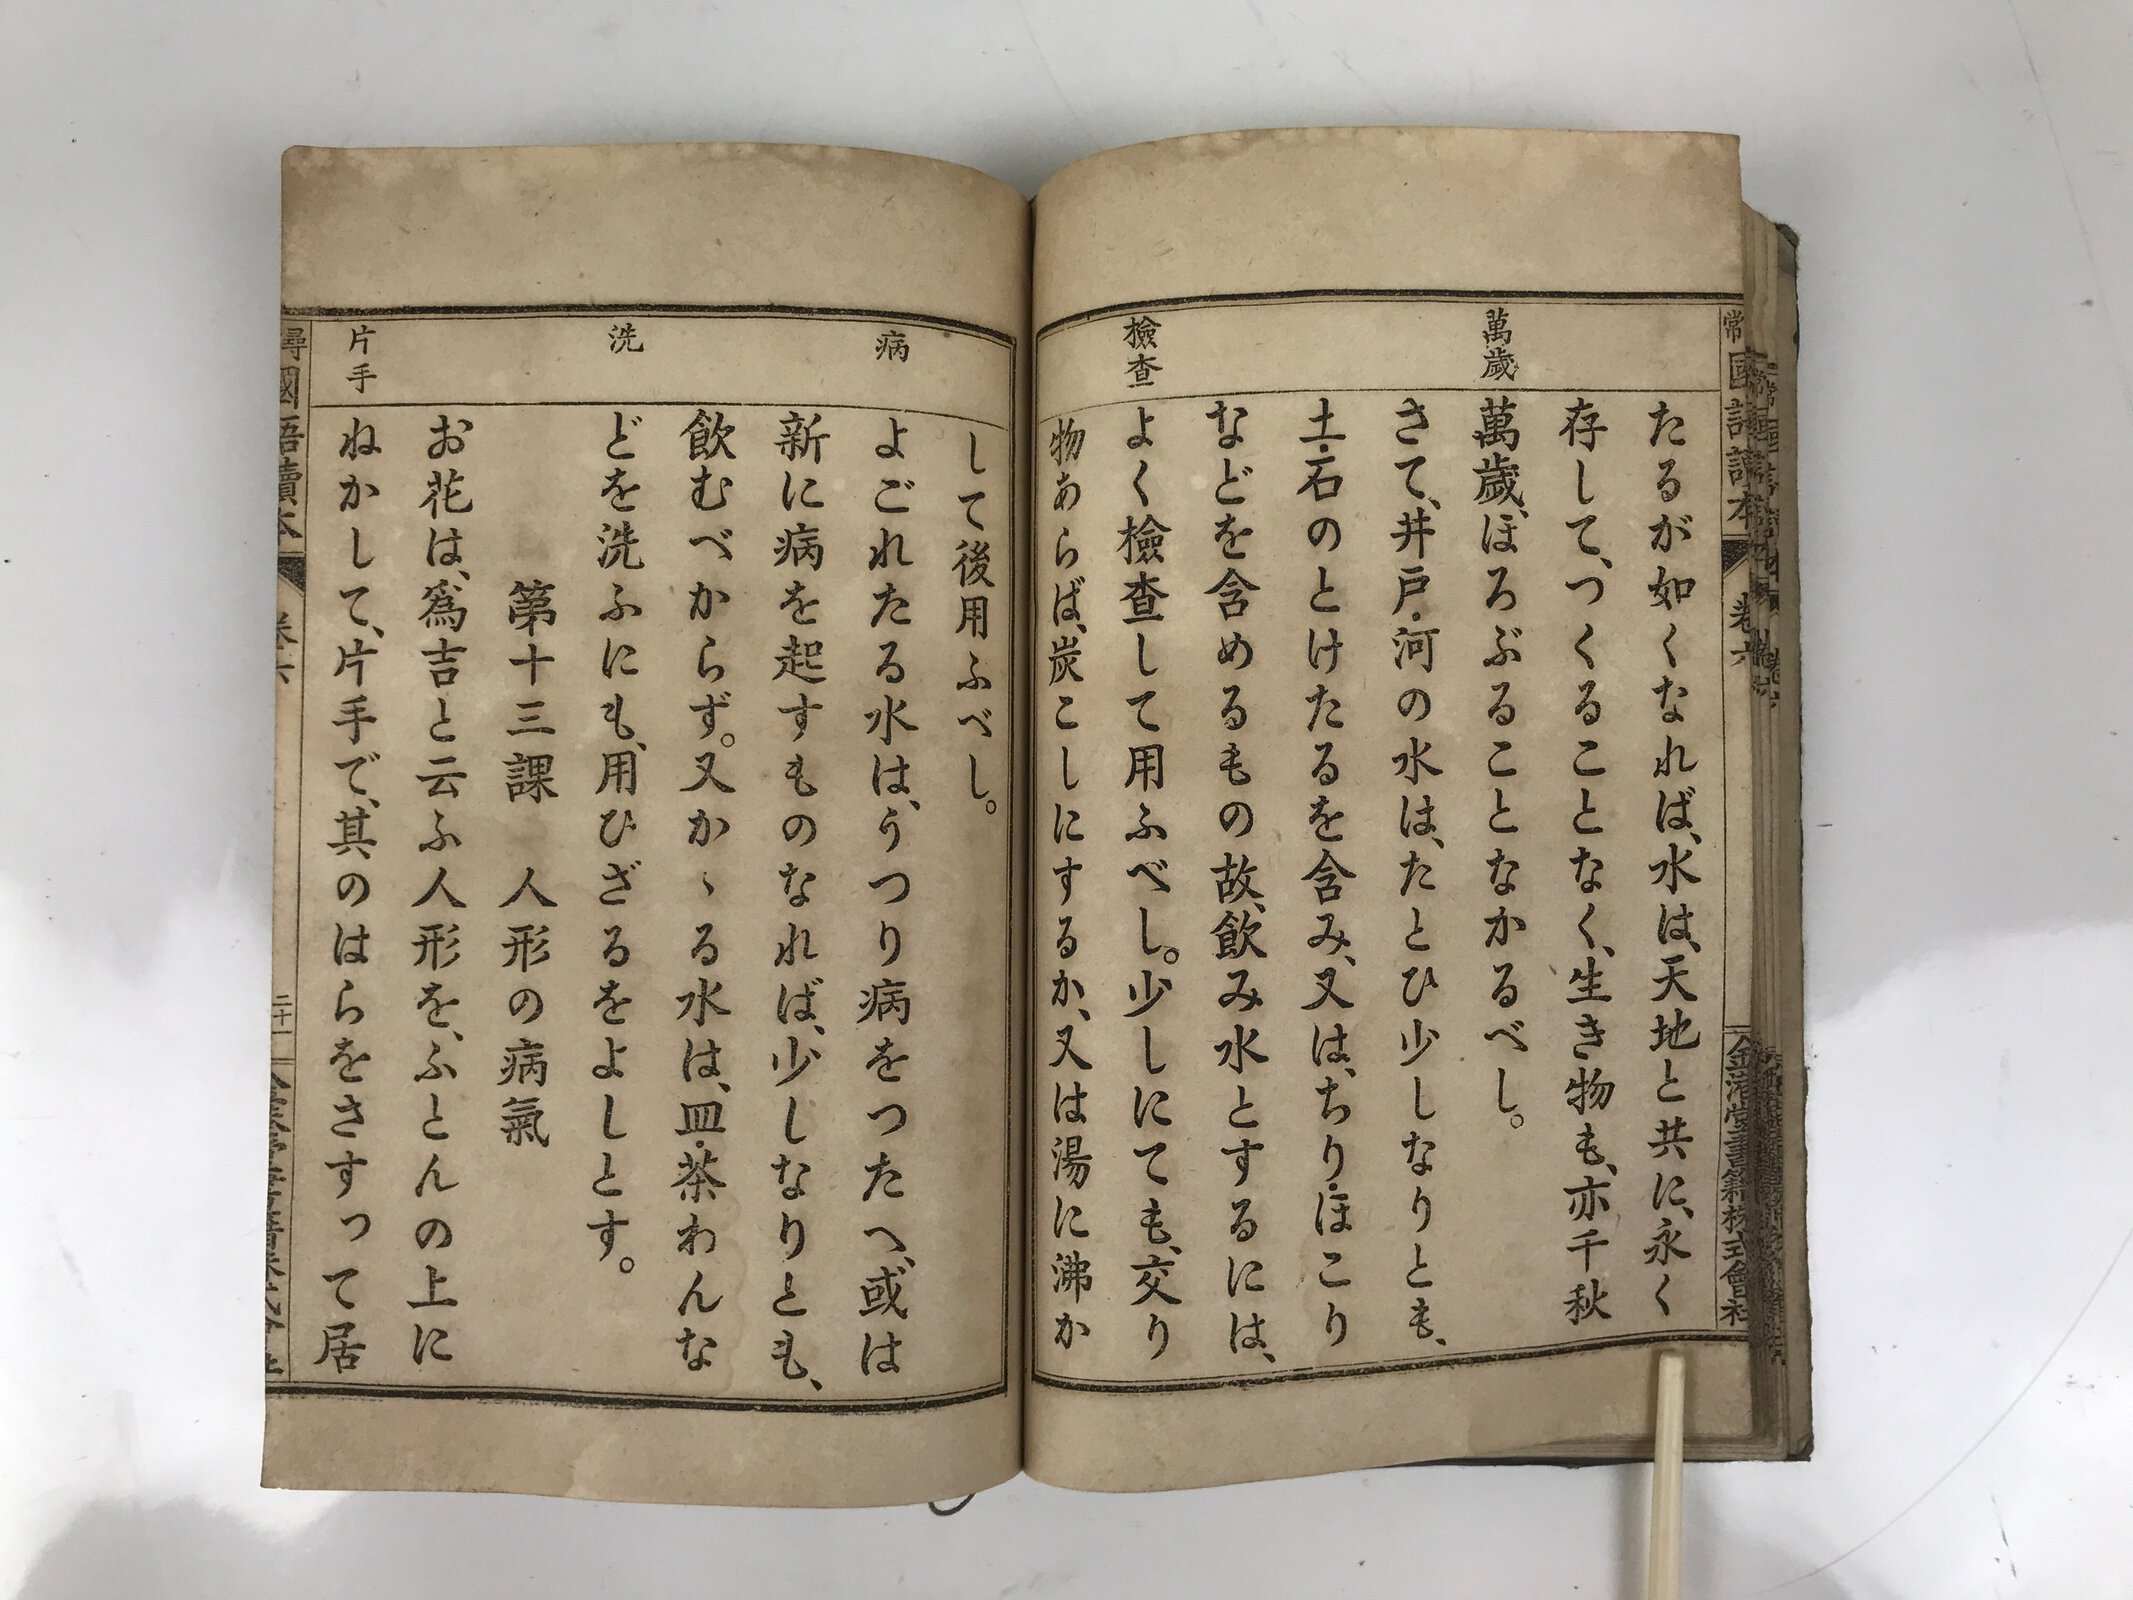 萬歲
檢査
たるが如くなれば、水は、天地と共に、永く
存して、つくることなく、生き物も、亦千秋
萬歲、ほろぶることなかるべし。
さて、井戸・河の水は、たとひ少しなりとも、
土・石のとけたるを含み、又は、ちり・ほこり
などを含めるもの故、飲み水とするには、
よく檢査して用ふべし。少しにても、交り
物あらば、炭こしにするか、又は湯に沸か
病
洗
片手
して後用ふべし。
よごれたる水は、うつり病をつたへ、或は
新に病を起すものなれば、少しなりとも、
飲むべからず。又かゝる水は、皿・茶わんな
どを洗ふにも、用ひざるをよしとす。
第十三課　人形の病氣
お花は、爲吉と云ふ人形を、ふとんの上に
ねかして、片手で、其のはらをさすって居
尋
國語讀本
卷六
二十一
常
國語讀本
卷六
金港堂書籍株式會社